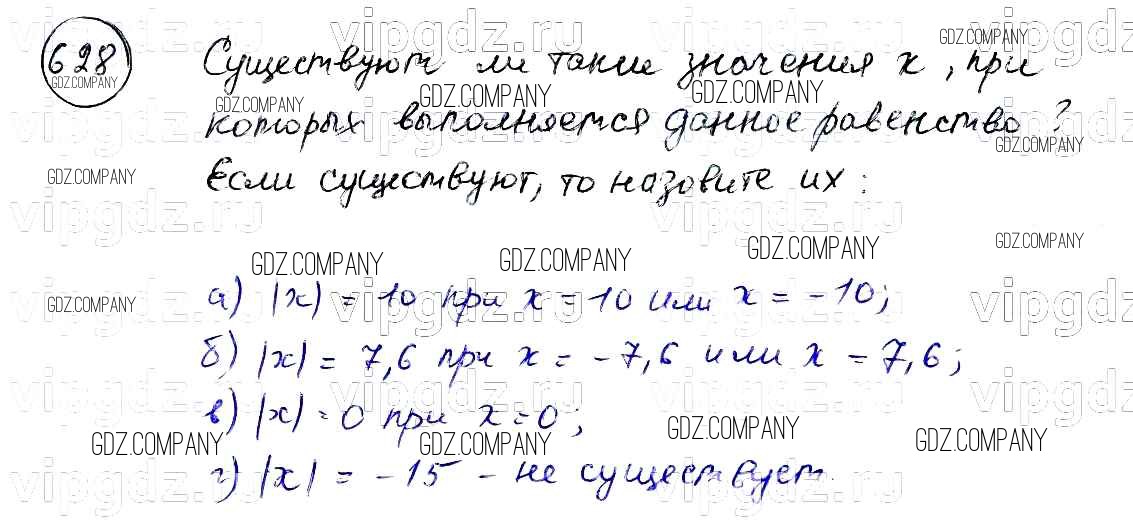 628
Существуют ли такие значения x, при
которых выполняется данное равенство?
Если существуют, то назовите их:
а) |x| = 10 при x = 10 или x = -10;
б) |x| = 7,6 при x = -7,6 или x = 7,6;
в) |x| = 0 при x = 0;
г) |x| = -15 - не существует.
vipgdz.ru
GDZ.COMPANY